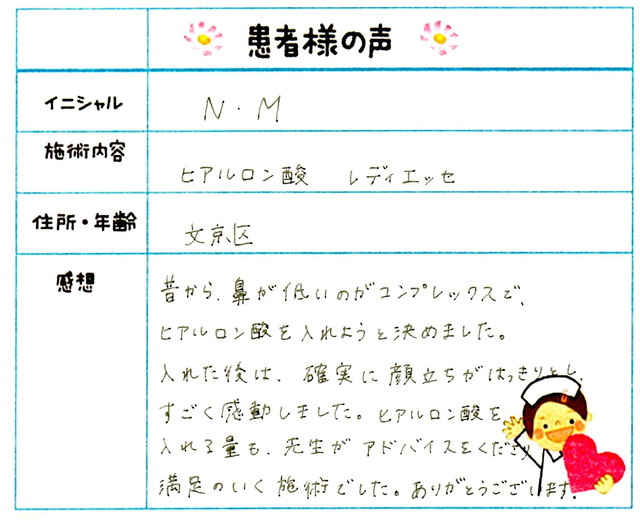 患者様の声
イニシャル N・M
施術内容 ヒアルロン酸 レディエッセ
住所・年齢 文京区
感想
昔から、鼻が低いのがコンプレックスで、
ヒアルロン酸を入れようと決めました。
入れた後は、確実に顔立ちがはっきりとし、
すごく感動しました。ヒアルロン酸を
入れる量も、先生がアドバイスをくださり
満足のいく施術でした。ありがとうございます。